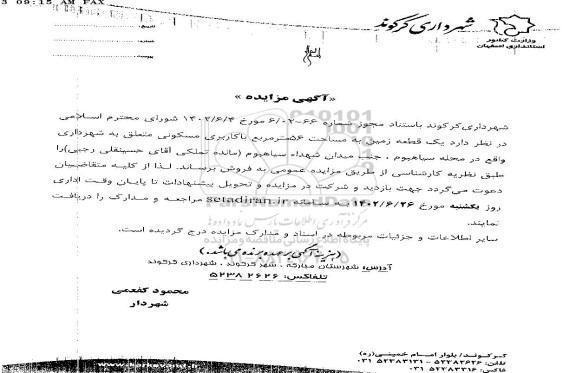 3 09:15 AM FAX
شهرداری کرکوند
وزارت کشور
استانداری اصفهان
تاریخ:
شماره:
پیوست:
«آگهی مزایده»
شهرداری کرکوند باستناد مجوز شماره ۶/۰۲-۶۶ مورخ ۱۴۰۲/۶/۴ شورای محترم اسلامی
در نظر دارد یک قطعه زمین به مساحت ۵۶مترمربع باکاربری مسکونی متعلق به شهرداری
واقع در محله سیاهبوم ، جنب میدان شهداء سیاهبوم (مانده تملکی آقای حسینقلی رجبی)را
طبق نظریه کارشناسی از طریق مزایده عمومی به فروش برساند. لذا از کلیه متقاضیان
دعوت می‌گردد جهت بازدید و شرکت در مزایده و تحویل پیشنهادات تا پایان وقت اداری
روز یکشنبه مورخ ۱۴۰۲/۶/۲۶ به سامانه setadiran.ir مراجعه و مدارک را دریافت
نمایند.
سایر اطلاعات و جزئیات مربوطه در اسناد و مدارک مزایده درج گردیده است.
(هزینه آگهی بر عهده برنده می‌باشد.)
آدرس: شهرستان مبارکه ، شهر کرکوند ، شهرداری کرکوند
تلفاکس: ۵۲۳۸۲۶۲۶
محمود کفعمی
شهردار
کرکوند/ بلوار امام خمینی(ره)
تلفن: ۵۲۳۸۲۶۲۶ - ۵۲۳۸۳۱۳۱ ۰۳۱
فاکس: ۵۲۳۸۳۳۱۶ ۰۳۱